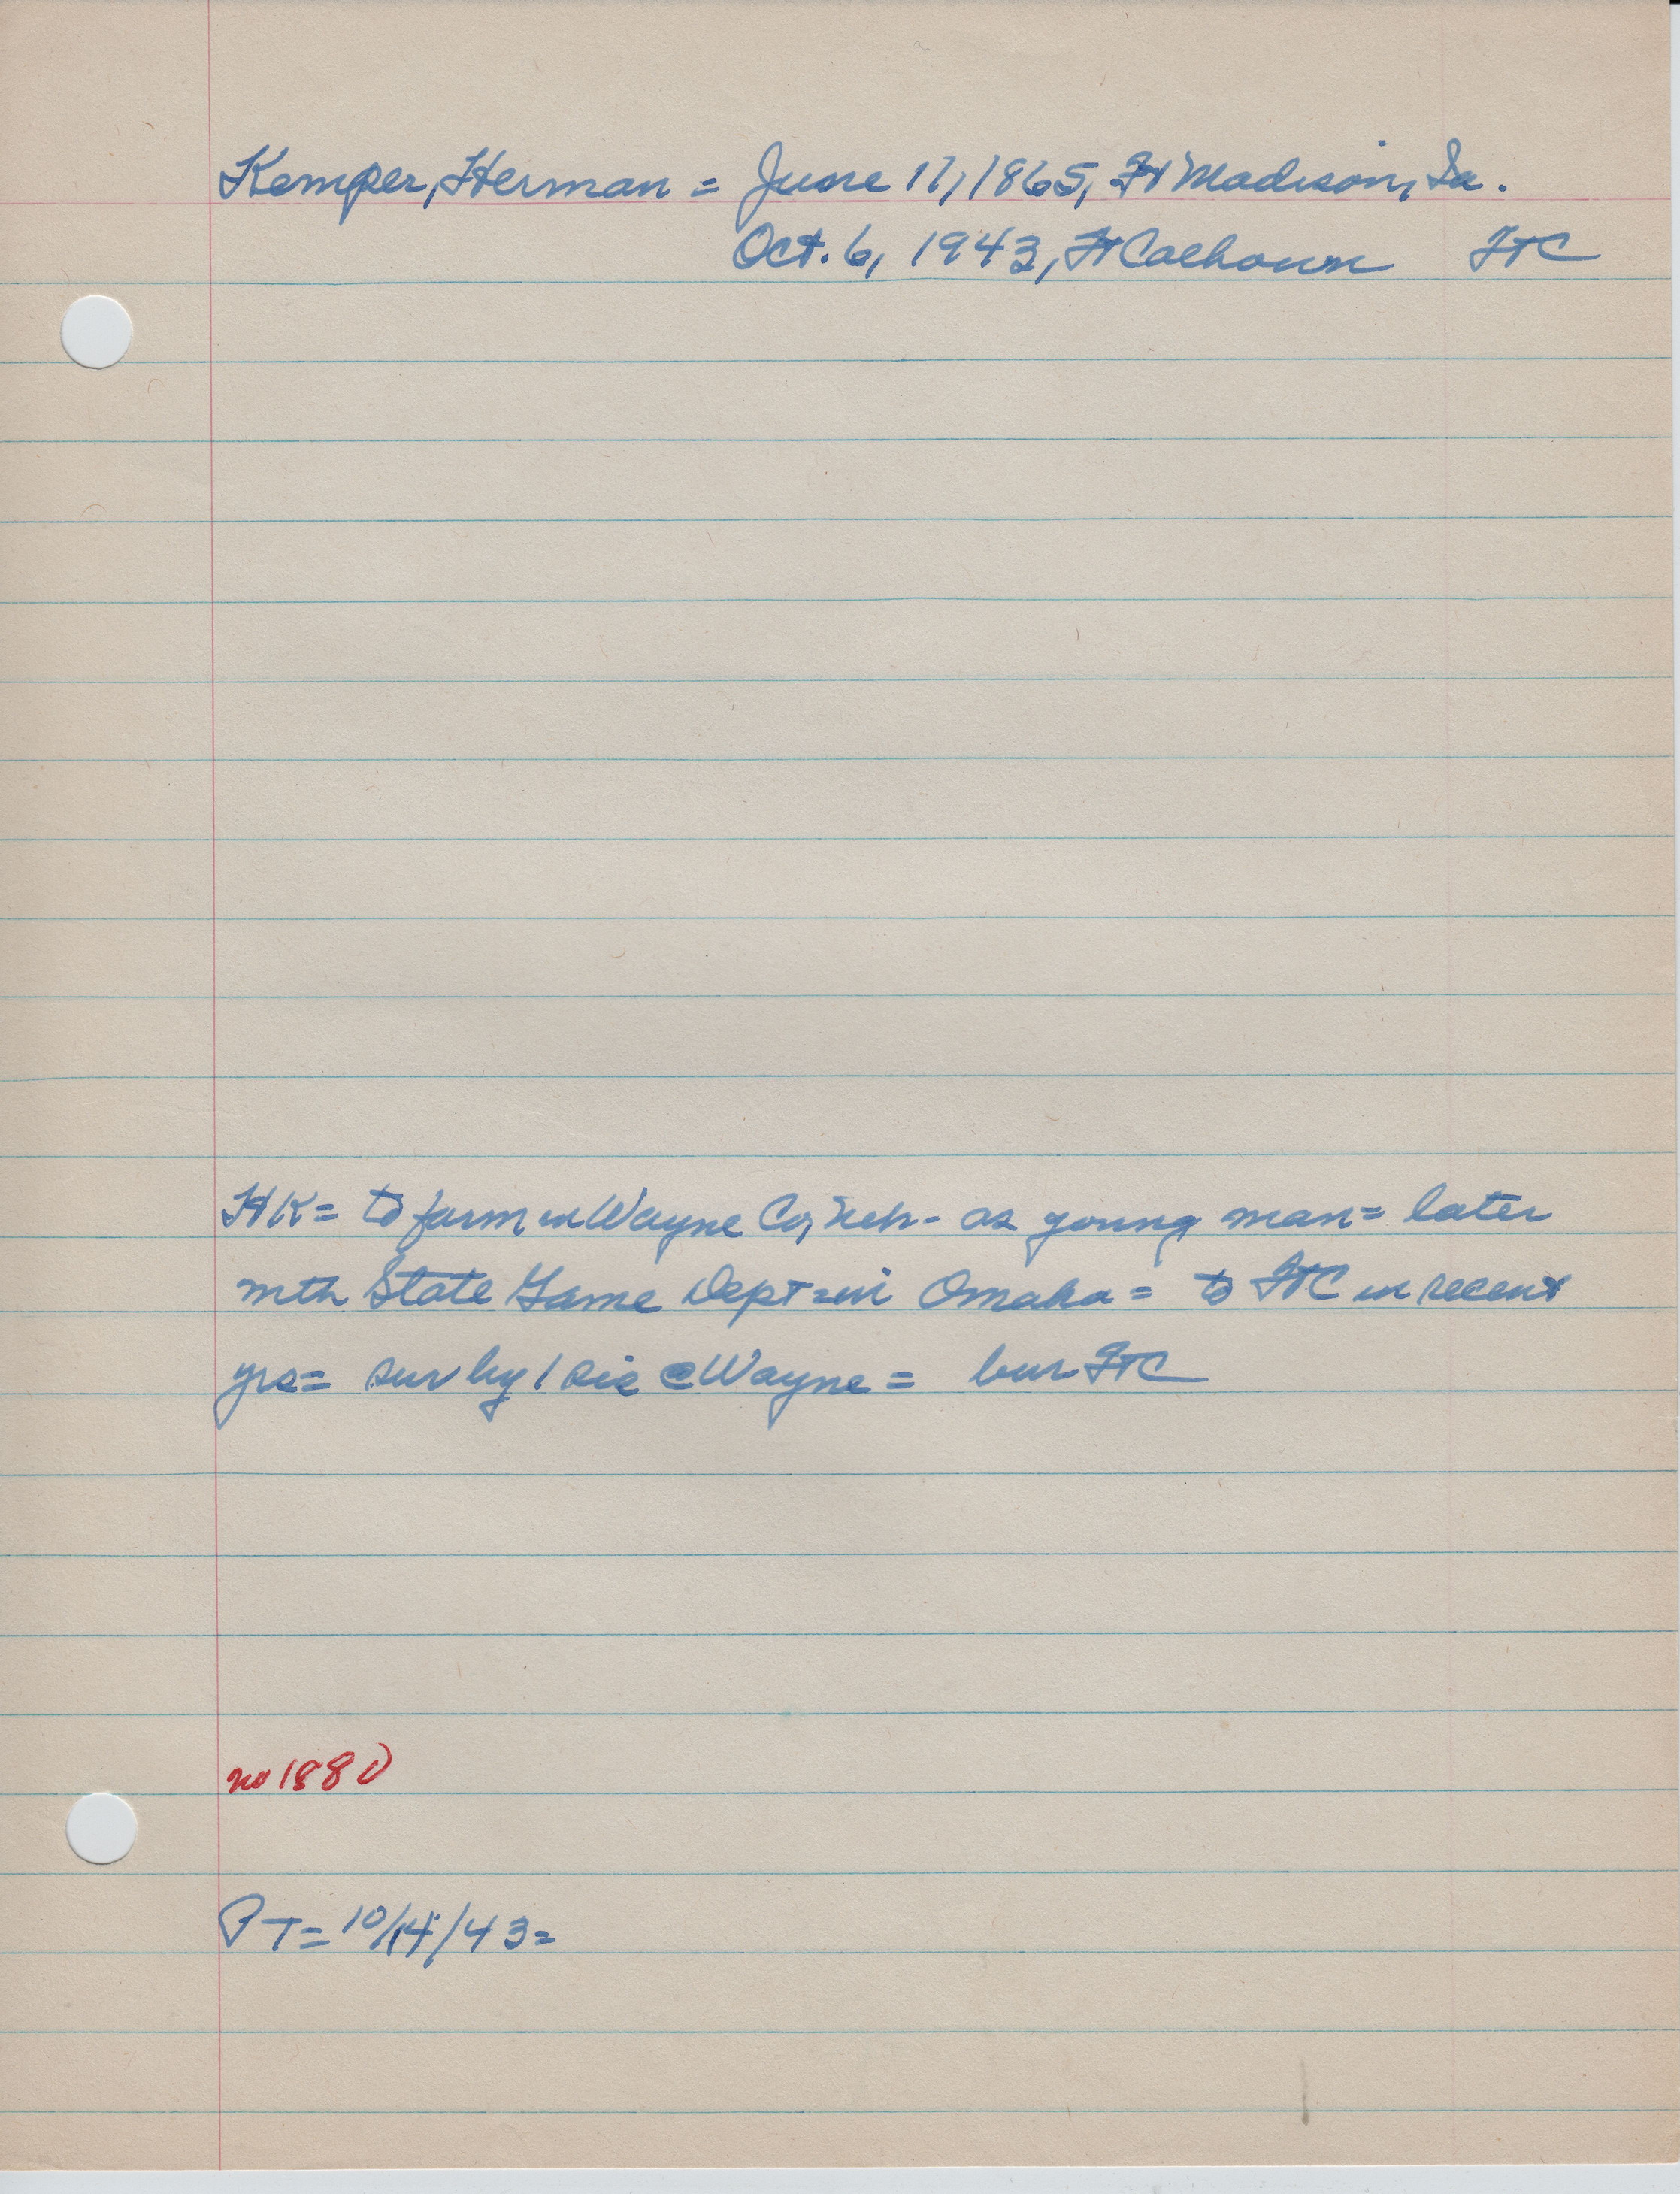 Kemper, Herman = June 11, 1865, Ft Madison, Ia.
Oct. 6, 1943, Ft Calhoun FTC
HK = to farm in Wayne Co, Neb - as young man = later
with State Game Dept = in Omaha = to FTC in recent
yrs = sur by 1 sis @ Wayne = bur FTC
no 1880
PT = 10/14/43 =